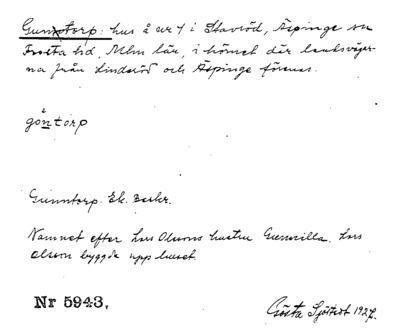 Gunntorp: hus å nr 1 i Stavröd, Äspinge sn
Frosta hd, Mlm län, i hörnet där landsväger-
na från Linderöd och Äspinge förenas.
göntorp
Gunntorp. Ek. kartr.
Namnet efter Lars Olsons hustru Gunnilla. Lars
Olson byggde upp huset.
Nr 5943.
Gösta Sjöstedt 1927.